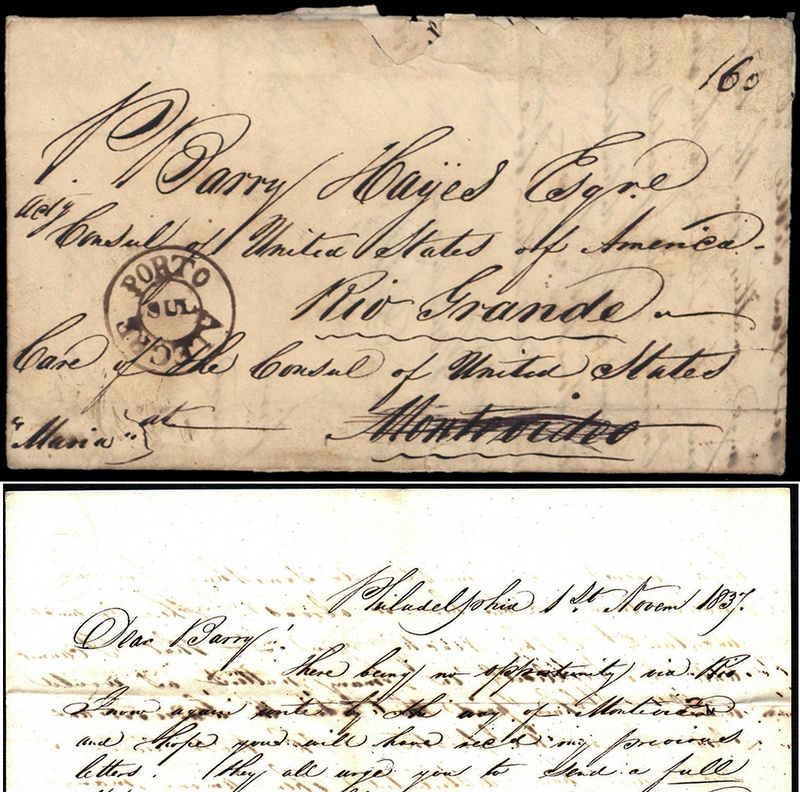 160
P Barry Hayes Esqre
actg
Consul of United States of America-
PORTO ALEGRE
JUL
Rio Grande
Care of the Consul of United States
"Maria" at
Montevideo
Philadelphia 1st Novem 1837.
Dear Barry!
there being no opportunity via Rio
I now again write by the way of Montevideo
and hope you will have recd my previous
letters. They all urge you to send a full